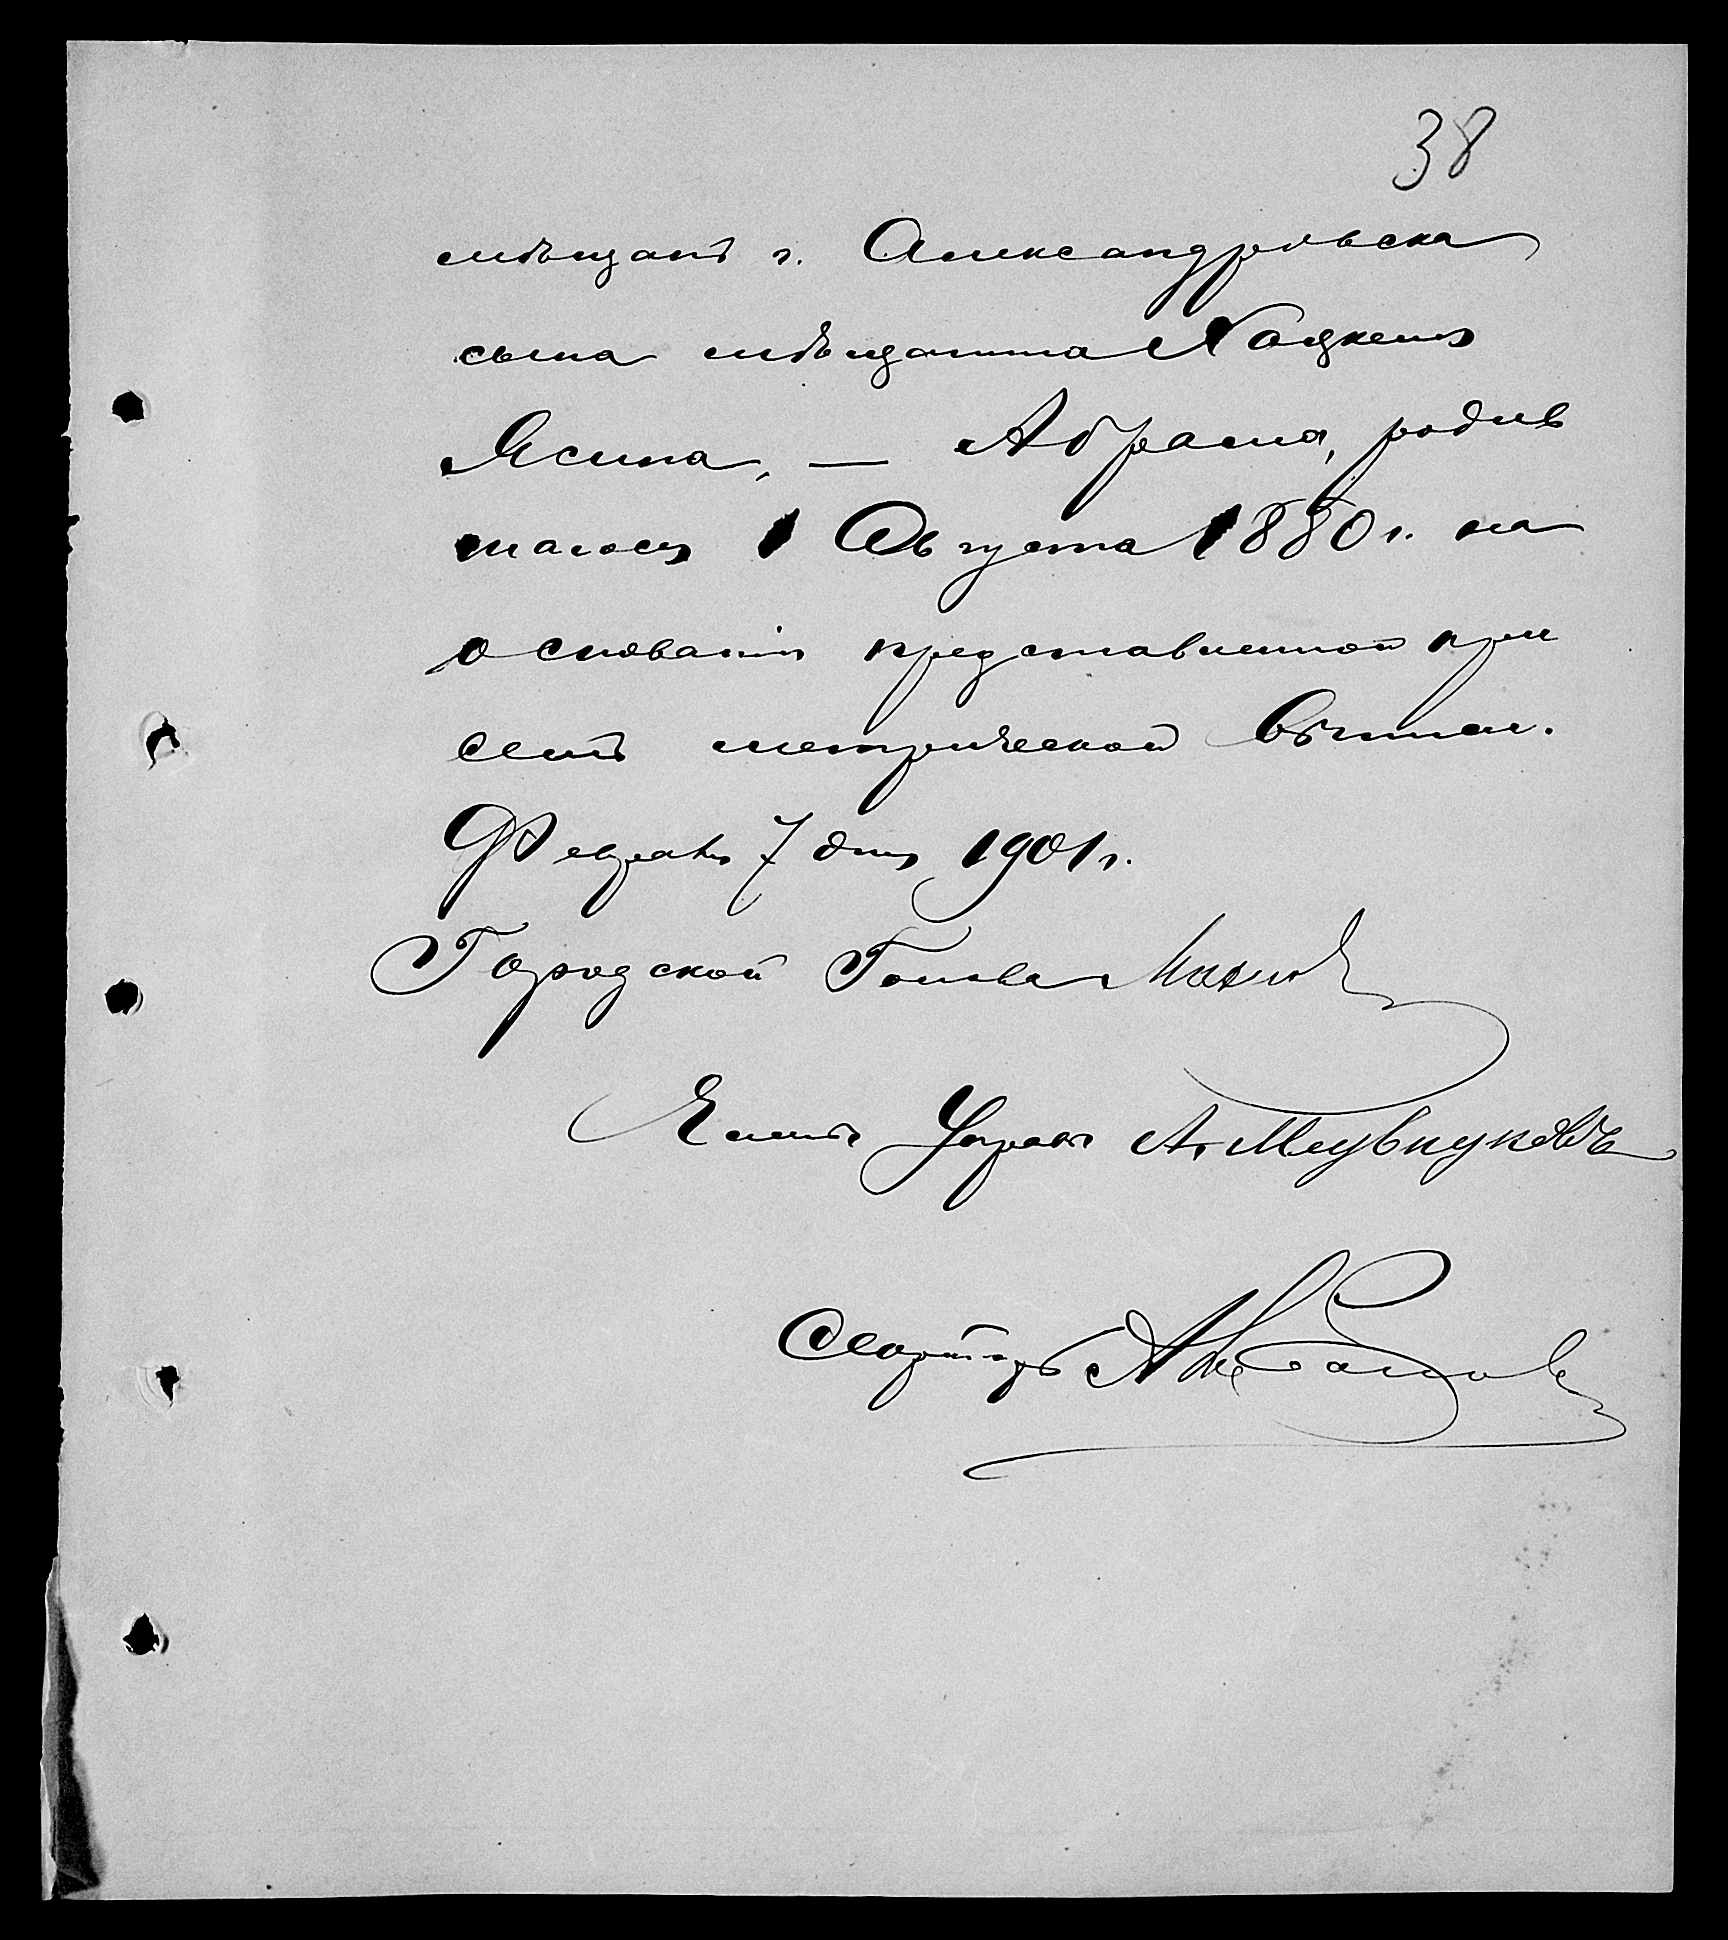 38
мѣщанъ г. Александровска
сына мѣщанина Хацкеля
Ясина, — Абрама, родив
шагося 1 Августа 1880 г. на
основаніи представленной при
семъ метрической выписи.
Февраля 7 дня 1901 г.
Городской Голова
Членъ Управы А.
Секретарь